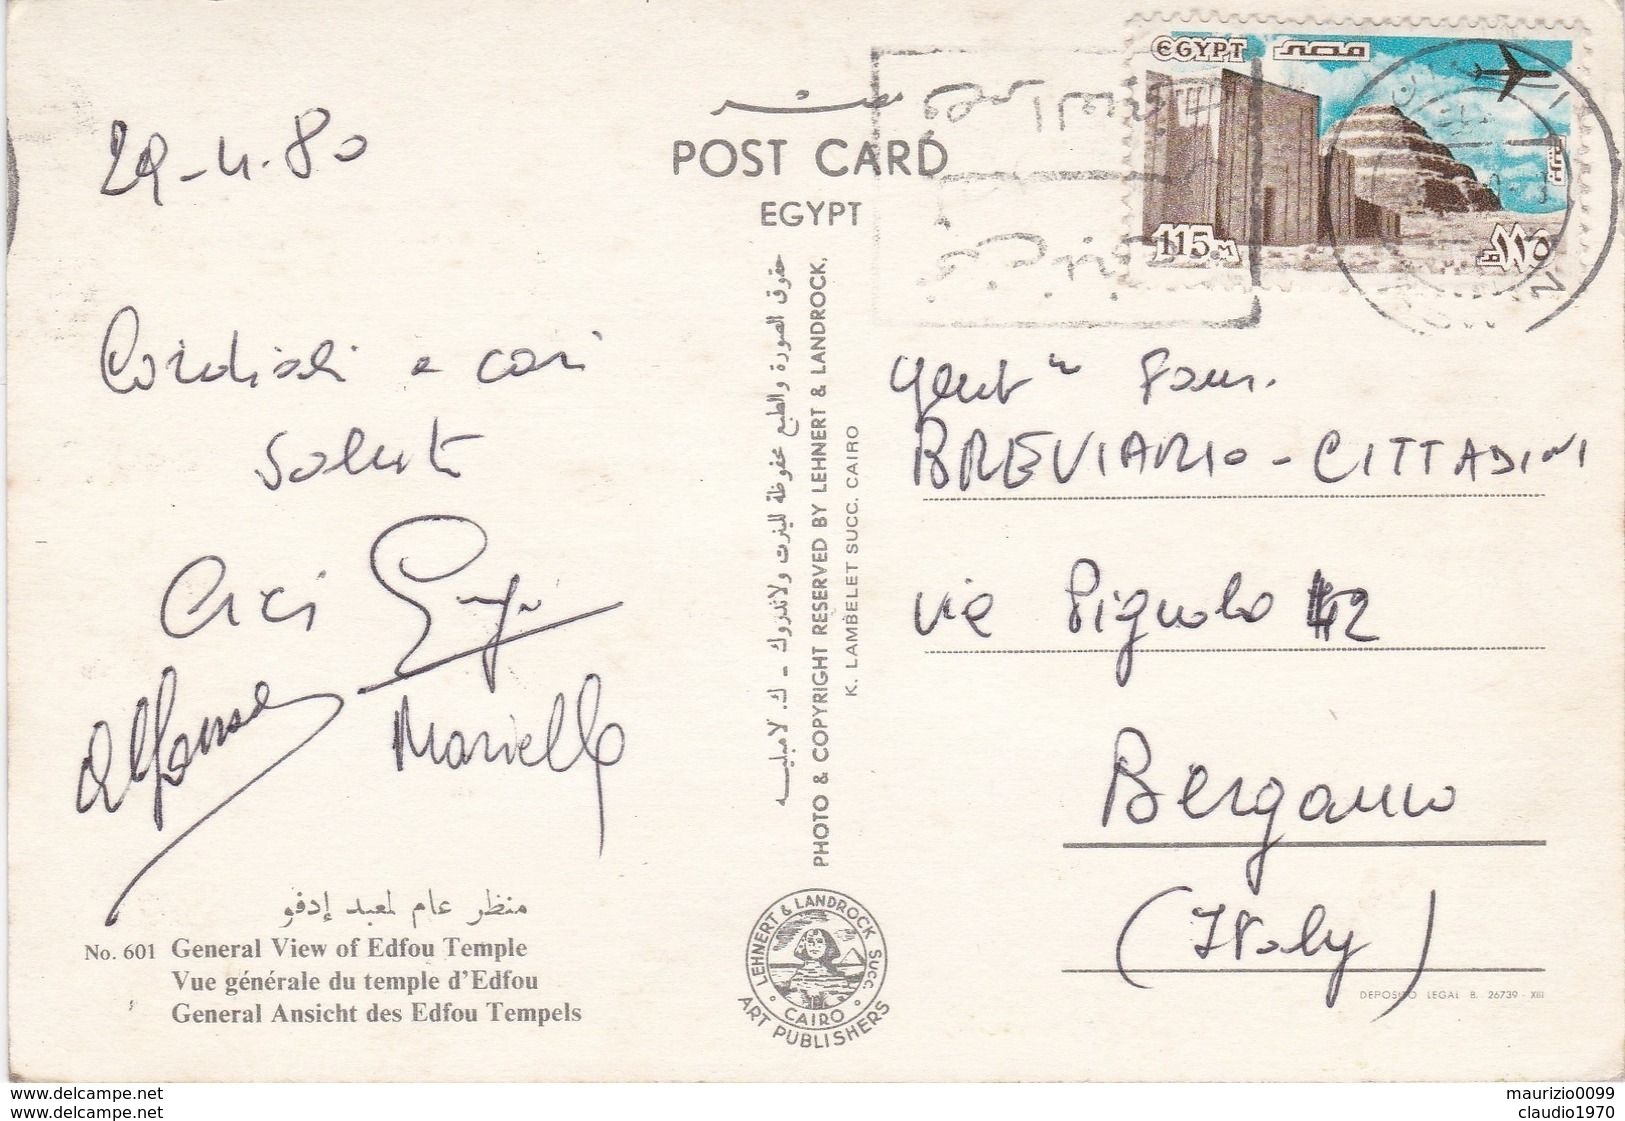 29-4.80
Cordiali e cari
saluti
Cici
Alfonso
Mariella
منظر عام لمعبد إدفو
No. 601 General View of Edfou Temple
Vue générale du temple d'Edfou
General Ansicht des Edfou Tempels
مصر
POST CARD
EGYPT
حقوق الصورة والطبع محفوظة للينرت ولاندروك - ك. لامبليه
PHOTO & COPYRIGHT RESERVED BY LEHNERT & LANDROCK,
K. LAMBELET SUCC. CAIRO
LEHNERT & LANDROCK SUCC.
CAIRO
ART PUBLISHERS
EGYPT مصر
115 M ١١٥ م
Gent.ma Fam.
BREVIARIO - CITTADINI
via Pignolo 42
Bergamo
(Italy)
DEPOSITO LEGAL B. 26739 - XIII
delcampe.net
maurizio0099
delcampe.net
claudio1970